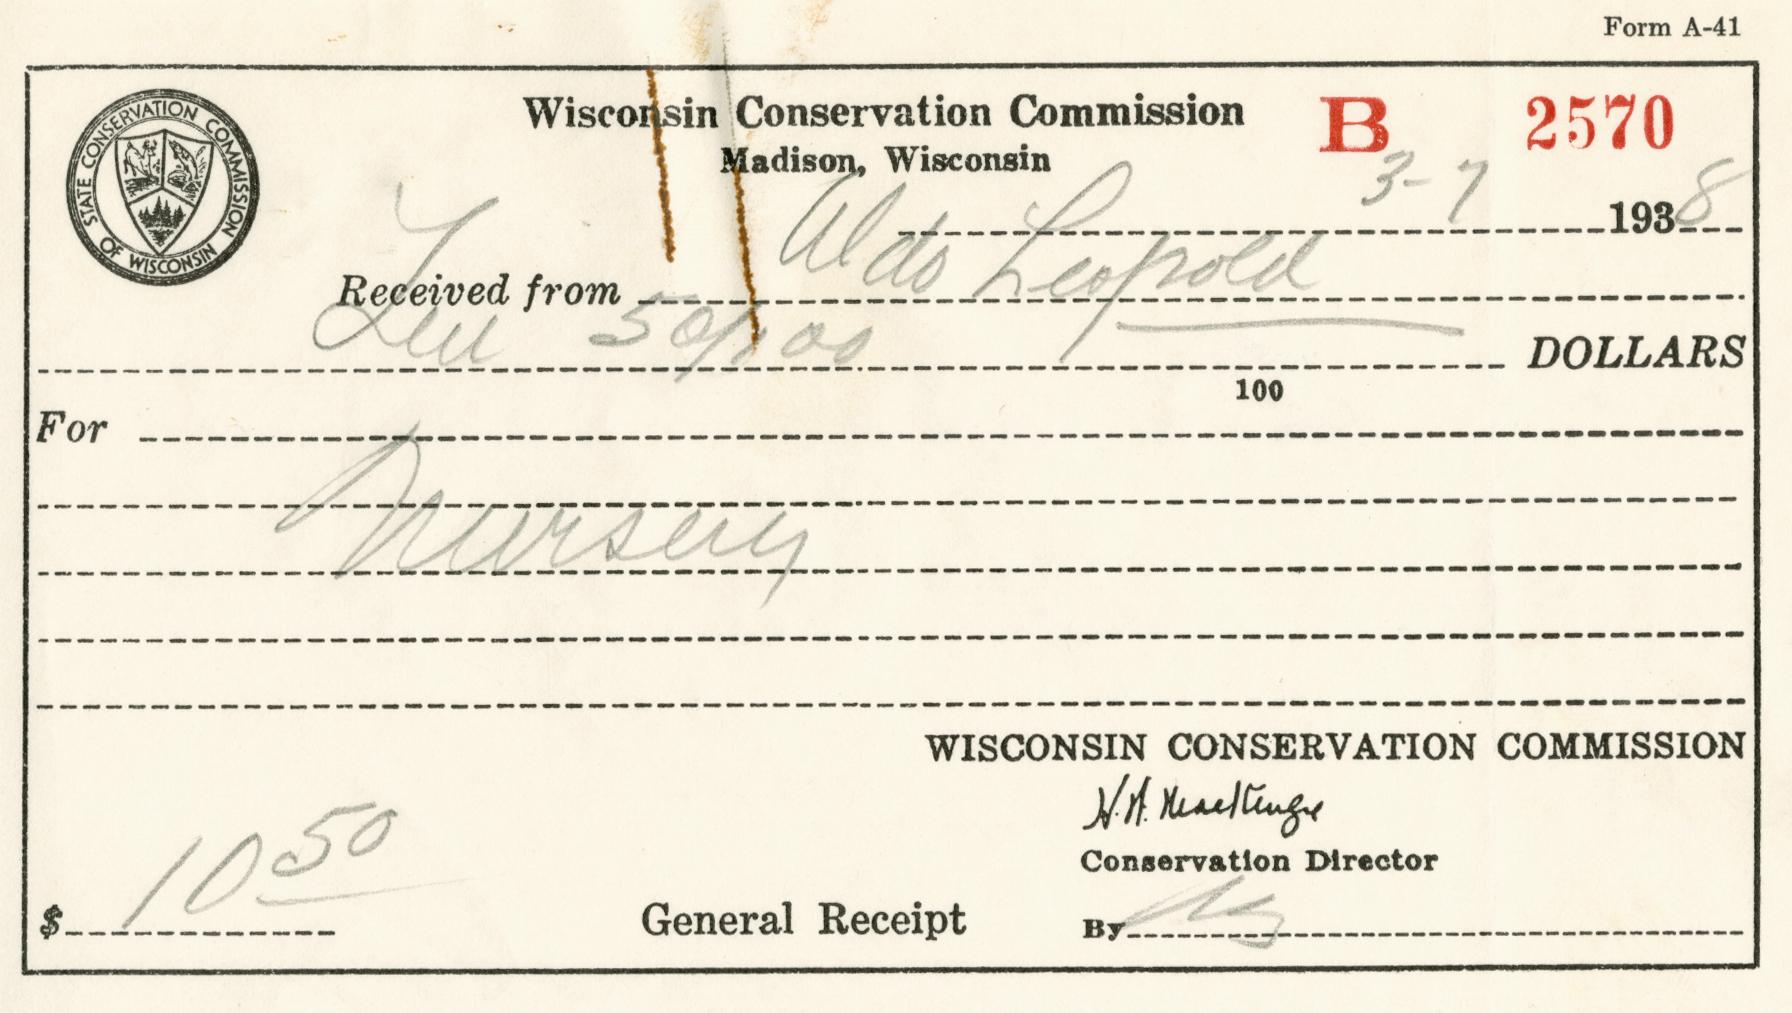 Form A-41
STATE CONSERVATION COMMISSION OF WISCONSIN
Wisconsin Conservation Commission B 2570
Madison, Wisconsin
3-7 1938
Received from Aldo Leopold
Ten 50/100 DOLLARS
100
For
Nursery
WISCONSIN CONSERVATION COMMISSION
H. W. MacKenzie
Conservation Director
$ 10 50 General Receipt By